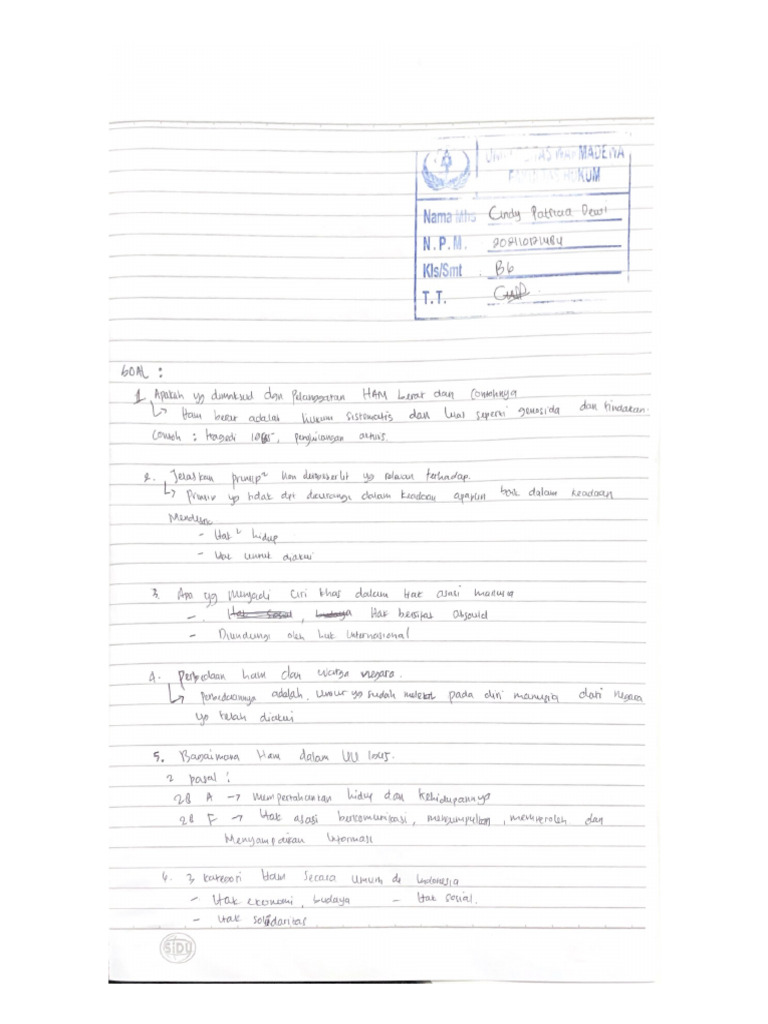 UNIVERSITAS WARMADEWA
FAKULTAS HUKUM
Nama Mhs Cindy Patricia Dewi
N.P.M.
Kls/Smt B6
T.T.
SOAL :
1. Apakah yg dimaksud dgn Pelanggaran HAM berat dan Contohnya
↳ Ham berat adalah hukum sistematis dan luas seperti genosida dan tindakan.
Contoh : tragedi 1965, pengincangan
2. Jelaskan prinsip² non yg relevan terhadap.
↳ prinsip yg tidak dpt dikurangi dalam keadaan apapun baik dalam keadaan
Mendesak
- Hak² hidup
- Hak untuk diakui
3. Apa yg menjadi ciri khas dalam hak asasi manusia
- Hak bersifat
- Dilindungi oleh huk internasional
4. Perbedaan ham dan warga negara.
↳ perbedaannya adalah. yg sudah melekat pada diri manusia dari negara
yg telah diakui
5. Bagaimana Ham dalam UU 1045.
2 pasal :
28 A → mempertahankan hidup dan kehidupannya
28 F → Hak asasi berkomunikasi, mengumpulkan, memperoleh dan
Menyampaikan Informasi
6. 3 kategori Ham secara umum di Indonesia
- Hak ekonomi, budaya - Hak sosial.
- Hak solidaritas
SIDU